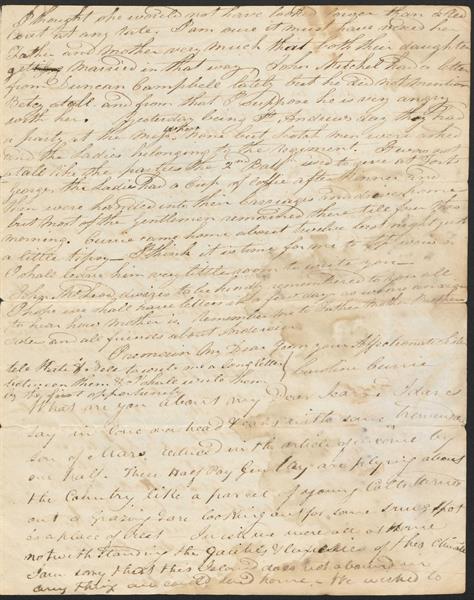 I thought she would not have lasted longer than a
at any rate I am sure it must have made her
Father and Mother very much that both their daughters
married in that way John Mitchel had a letter
from Duncan Campbell lately but he did not mention
Betsy at all and from that I suppose he is very angry
with her. Yesterday being St Andrews day they had
a party at the Mess None but Scotch men were asked
and the Ladies belonging to the Regiment. It was not
at all like the parties the 2nd Batt used to give at Fort
George the Ladies had a cup of Coffee after dinner and
then were handed into their Carriages and drove home
but most of the Gentlemen remained there till four this
morning. Currie came home about twelve last night just
a little tipsy I think it is time for me to stop or
I shall leave him very little room to write you
desires to be kindly remembered to you all
I hope we shall have letters in a few days as we are anxious
to hear how Mother is. Remember me to Father Mother
and all friends about
I remain My Dear your Affectionate Sister
Caroline Currie
tell & to write me a long letter
them & I shall write them
by the first opportunity
What are you about my Dear I
say in love over head & ears with some tremendous
son of Mars, reduced in the article of income by
one half. These Half Pay Gentry are plying about
the Country like a parcel of young
out a Grazing and are looking out for some snug spot
as a place of Rest I wish we were all at Home
notwithstanding the Gaieties & Luxuries of this Climate
I am sorry that this Island does not abound in
any thing we could send home. We wished to